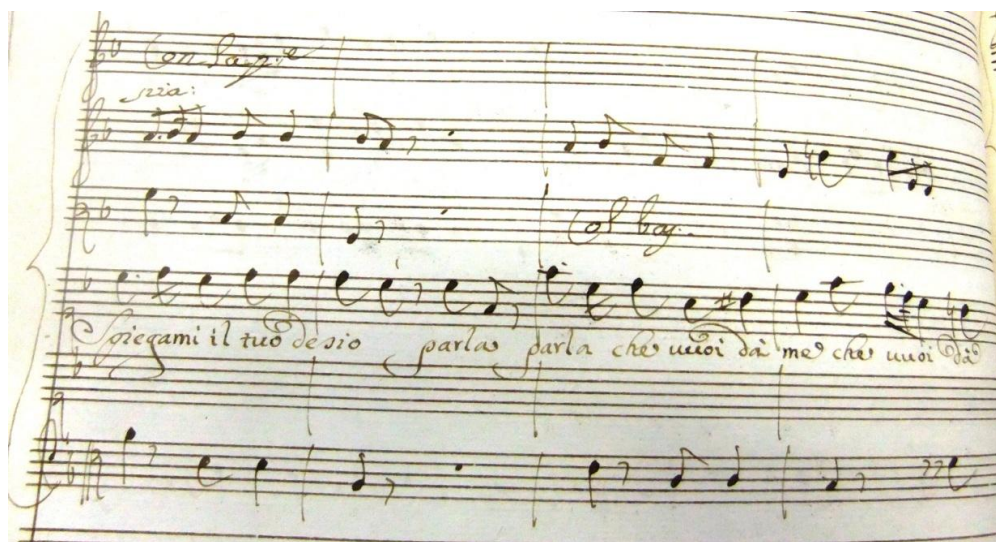 Con la p.e
pia:
Col bas:
Spiegami il tuo desio parla parla che vuoi dà me che vuoi dà